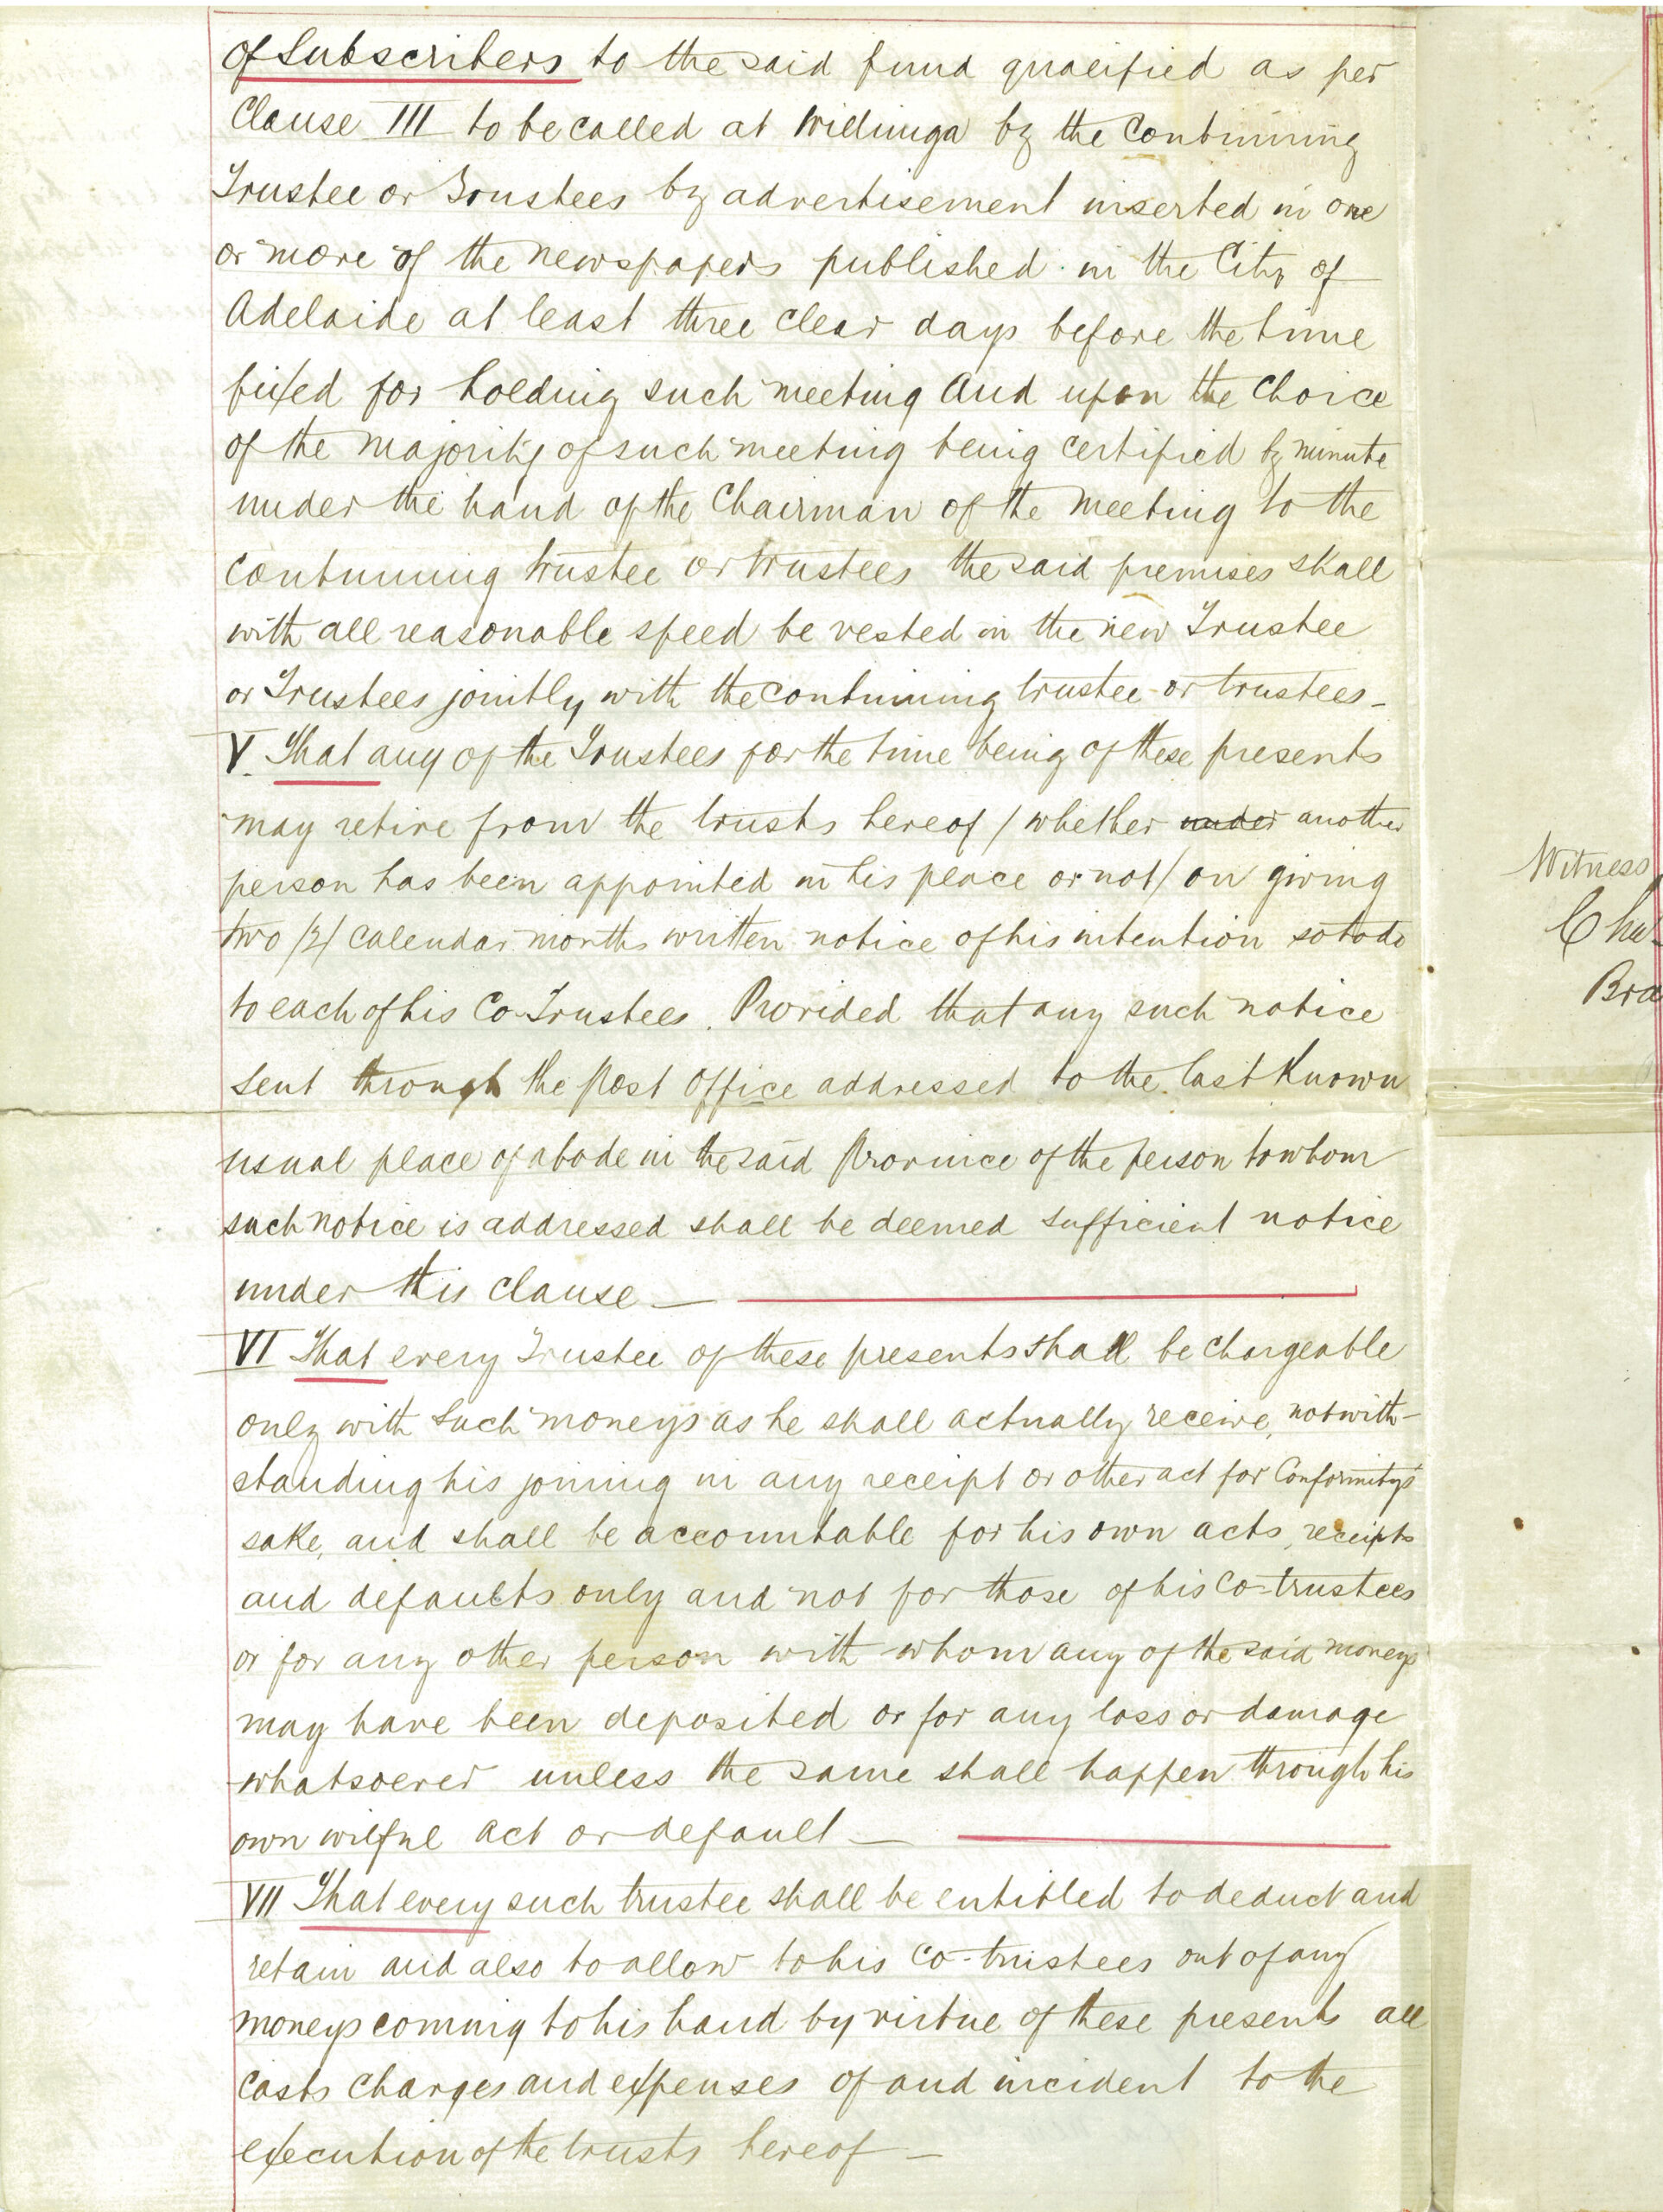 of Subscribers to the said fund qualified as per
Clause III to be called at Willunga by the Continuing
Trustee or Trustees by advertisement inserted in one
or more of the newspapers published in the City of
Adelaide at least three clear days before the time
fixed for holding such meeting And upon the Choice
of the majority of such meeting being certified by minute
under the hand of the Chairman of the meeting to the
continuing trustee or trustees the said premises shall
with all reasonable speed be vested in the new Trustee
or Trustees jointly with the continuing trustee or trustees —
V. That any of the Trustees for the time being of these presents
may retire from the trusts hereof / whether under another
person has been appointed in his place or not / on giving
two /2/ calendar months written notice of his intention so to do
to each of his Co-Trustees. Provided that any such notice
sent through the Post Office addressed to the last Known
usual place of abode in the said Province of the person to whom
such notice is addressed shall be deemed sufficient notice
under this clause —
VI That every Trustee of these presents shall be chargeable
only with such moneys as he shall actually receive, notwith-
standing his joining in any receipt or other act for Conformity's
sake, and shall be accountable for his own acts, receipts
and defaults only and not for those of his Co-trustees
or for any other person with whom any of the said moneys
may have been deposited or for any loss or damage
whatsoever unless the same shall happen through his
own wilful act or default —
VII That every such trustee shall be entitled to deduct and
retain and also to allow to his Co-trustees out of any
moneys coming to his hand by virtue of these presents all
costs charges and expenses of and incident to the
execution of the trusts hereof —
Witness
Cha
Bra